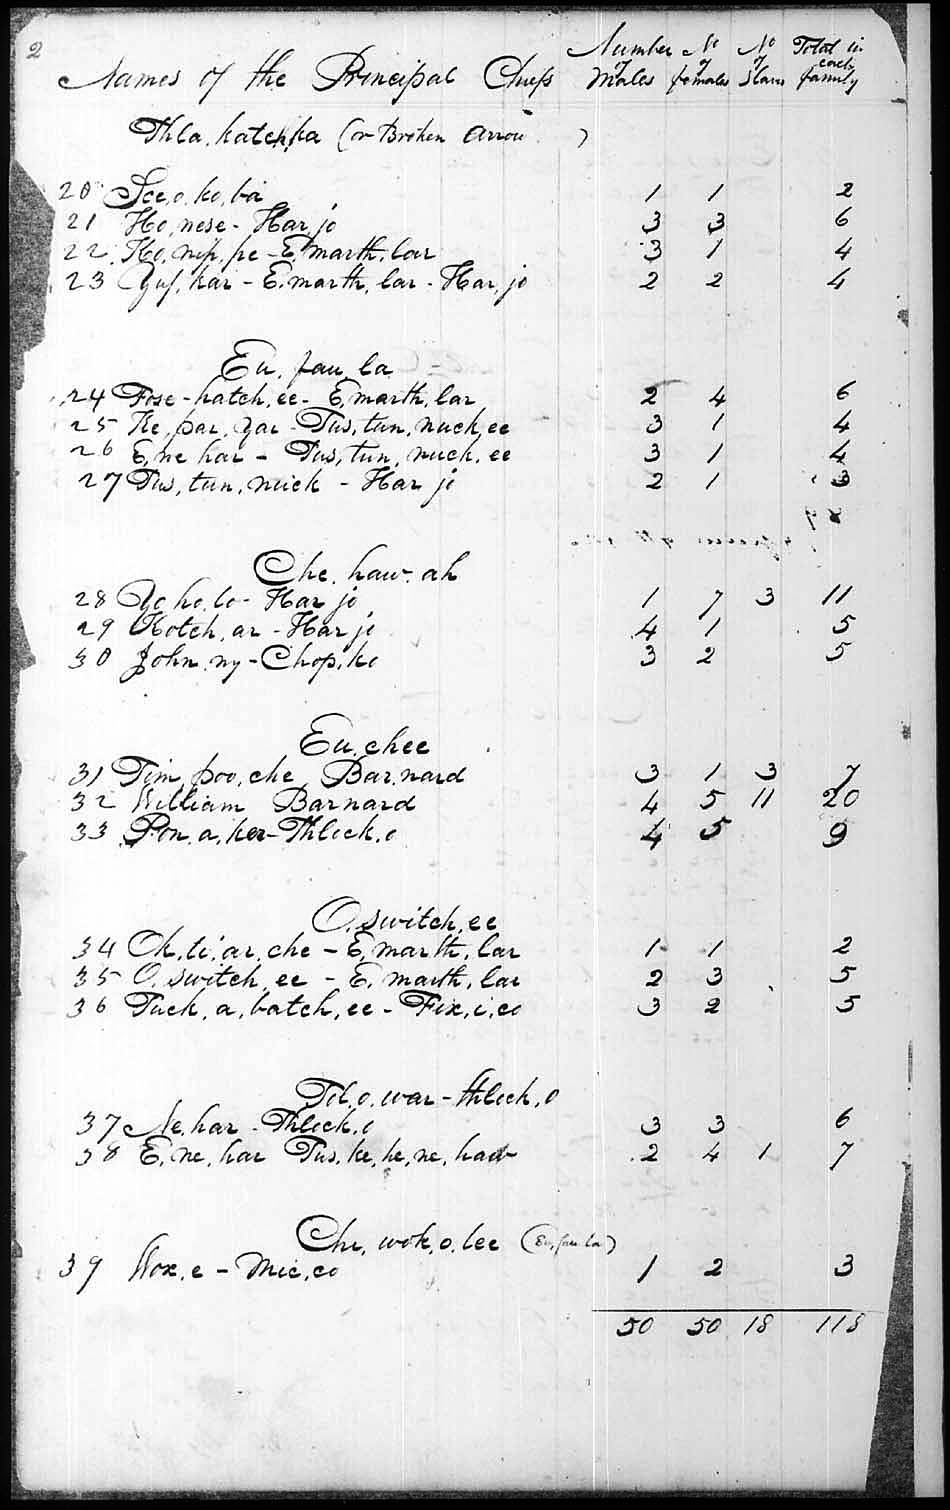 2
Names of the Principal Chiefs Number of Males No of females No of Slaves Total in each family
Thla,katch,ka (or Broken Arrow )
20 See,o,ko,ba 1 1 2
21 Ho,nese - Har,jo 3 3 6
22 Ho,nip,pe - E,marth,lar 3 1 4
23 Yuf,kar - E,marth,lar - Har,jo 2 2 4
Eu,fau,la
24 Fose - hatch,ee - E,marth,lar 2 4 6
25 Ke,par,yar - Tus,tun,nuck,ee 3 1 4
26 E,ne har - Tus,tun,nuck,ee 3 1 4
27 Tus,tun,nuck - Har jo 2 1 3
Che,haw,ah
28 Yo ho,lo - Har jo 1 7 3 11
29 Kotch,ar - Har jo 4 1 5
30 John,ny - Chop,ko 3 2 5
Eu,chee
31 Tim,poo,che Barnard 3 1 3 7
32 William Barnard 4 5 11 20
33 Pon,a,kar - Thlock,o 4 5 9
O,switch,ee
34 Ok,ti,ar,che - E,marth,lar 1 1 2
35 O,switch,ee - E,marth,lar 2 3 5
36 Tuck,a,batch,ee - Fix,i,co 3 2 5
Tol,o,war - thlock,o
37 Ne,har - Thlock,o 3 3 6
38 E,ne,har Tus,ke,he,ne,haw 2 4 1 7
Che,wok,o,lee (Eu,fau la)
39 Wox,e - Mic,co 1 2 3
50 50 18 118